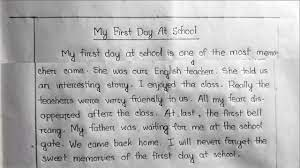 My First Day At School
My first day at school is one of the most memo
chers came. She was our English teacher. She told us
an interesting story. I enjoyed the class. Really the
teachers were very friendly to us. All my fear dis-
appeared after the class. At last, the first bell
rang. My father was waiting for me at the school
gate. We came back home. I will never forget the
sweet memories of the first day of school.